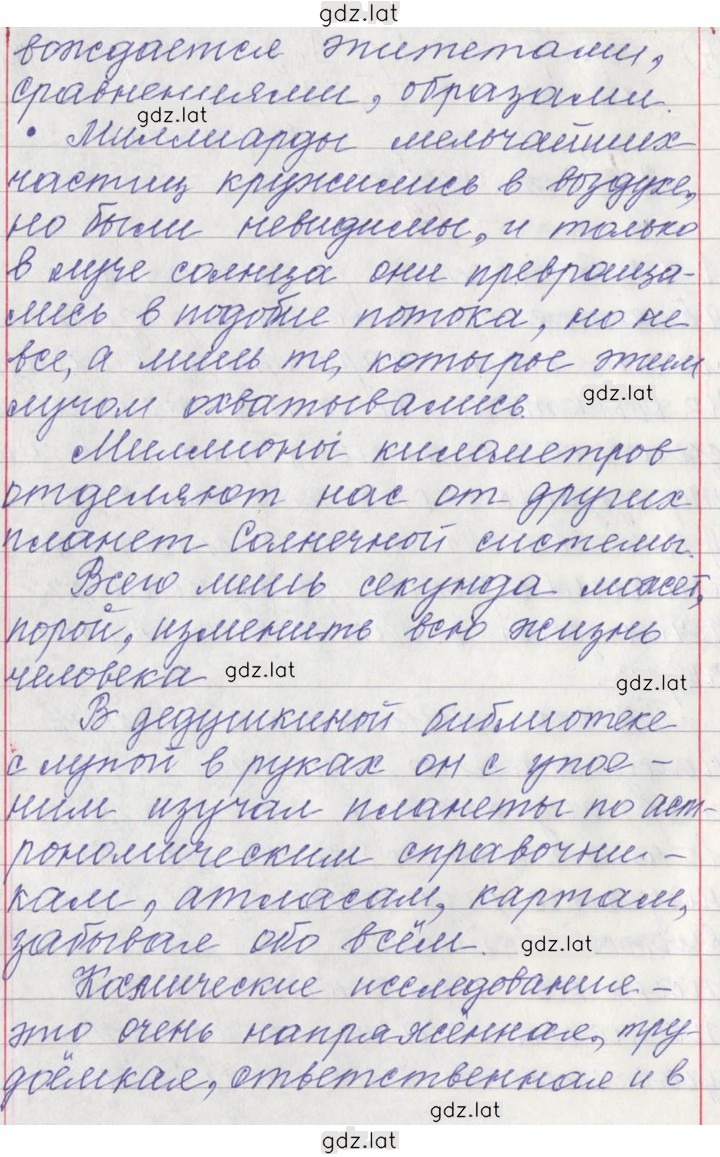 gdz.lat
вождается эпитетами,
сравнениями, образами.
gdz.lat
• Миллиарды мельчайших
частиц кружились в воздухе,
но были невидимы, и только
в луче солнца они превраща-
лись в подобие потока, но не
все, а лишь те, которые этим
gdz.lat
лучом охватывались.
Миллионы километров
отделяют нас от других
планет Солнечной системы.
Всего лишь секунда может,
порой, изменить всю жизнь
человека
gdz.lat
gdz.lat
В дедушкиной библиотеке
с лупой в руках он с упое-
ним изучал планеты по аст-
рономическим справочни-
кам, атласам, картам,
забывая обо всём.
gdz.lat
Космические исследования –
это очень напряжённая, тру-
доёмкая, ответственная и в
gdz.lat
gdz.lat